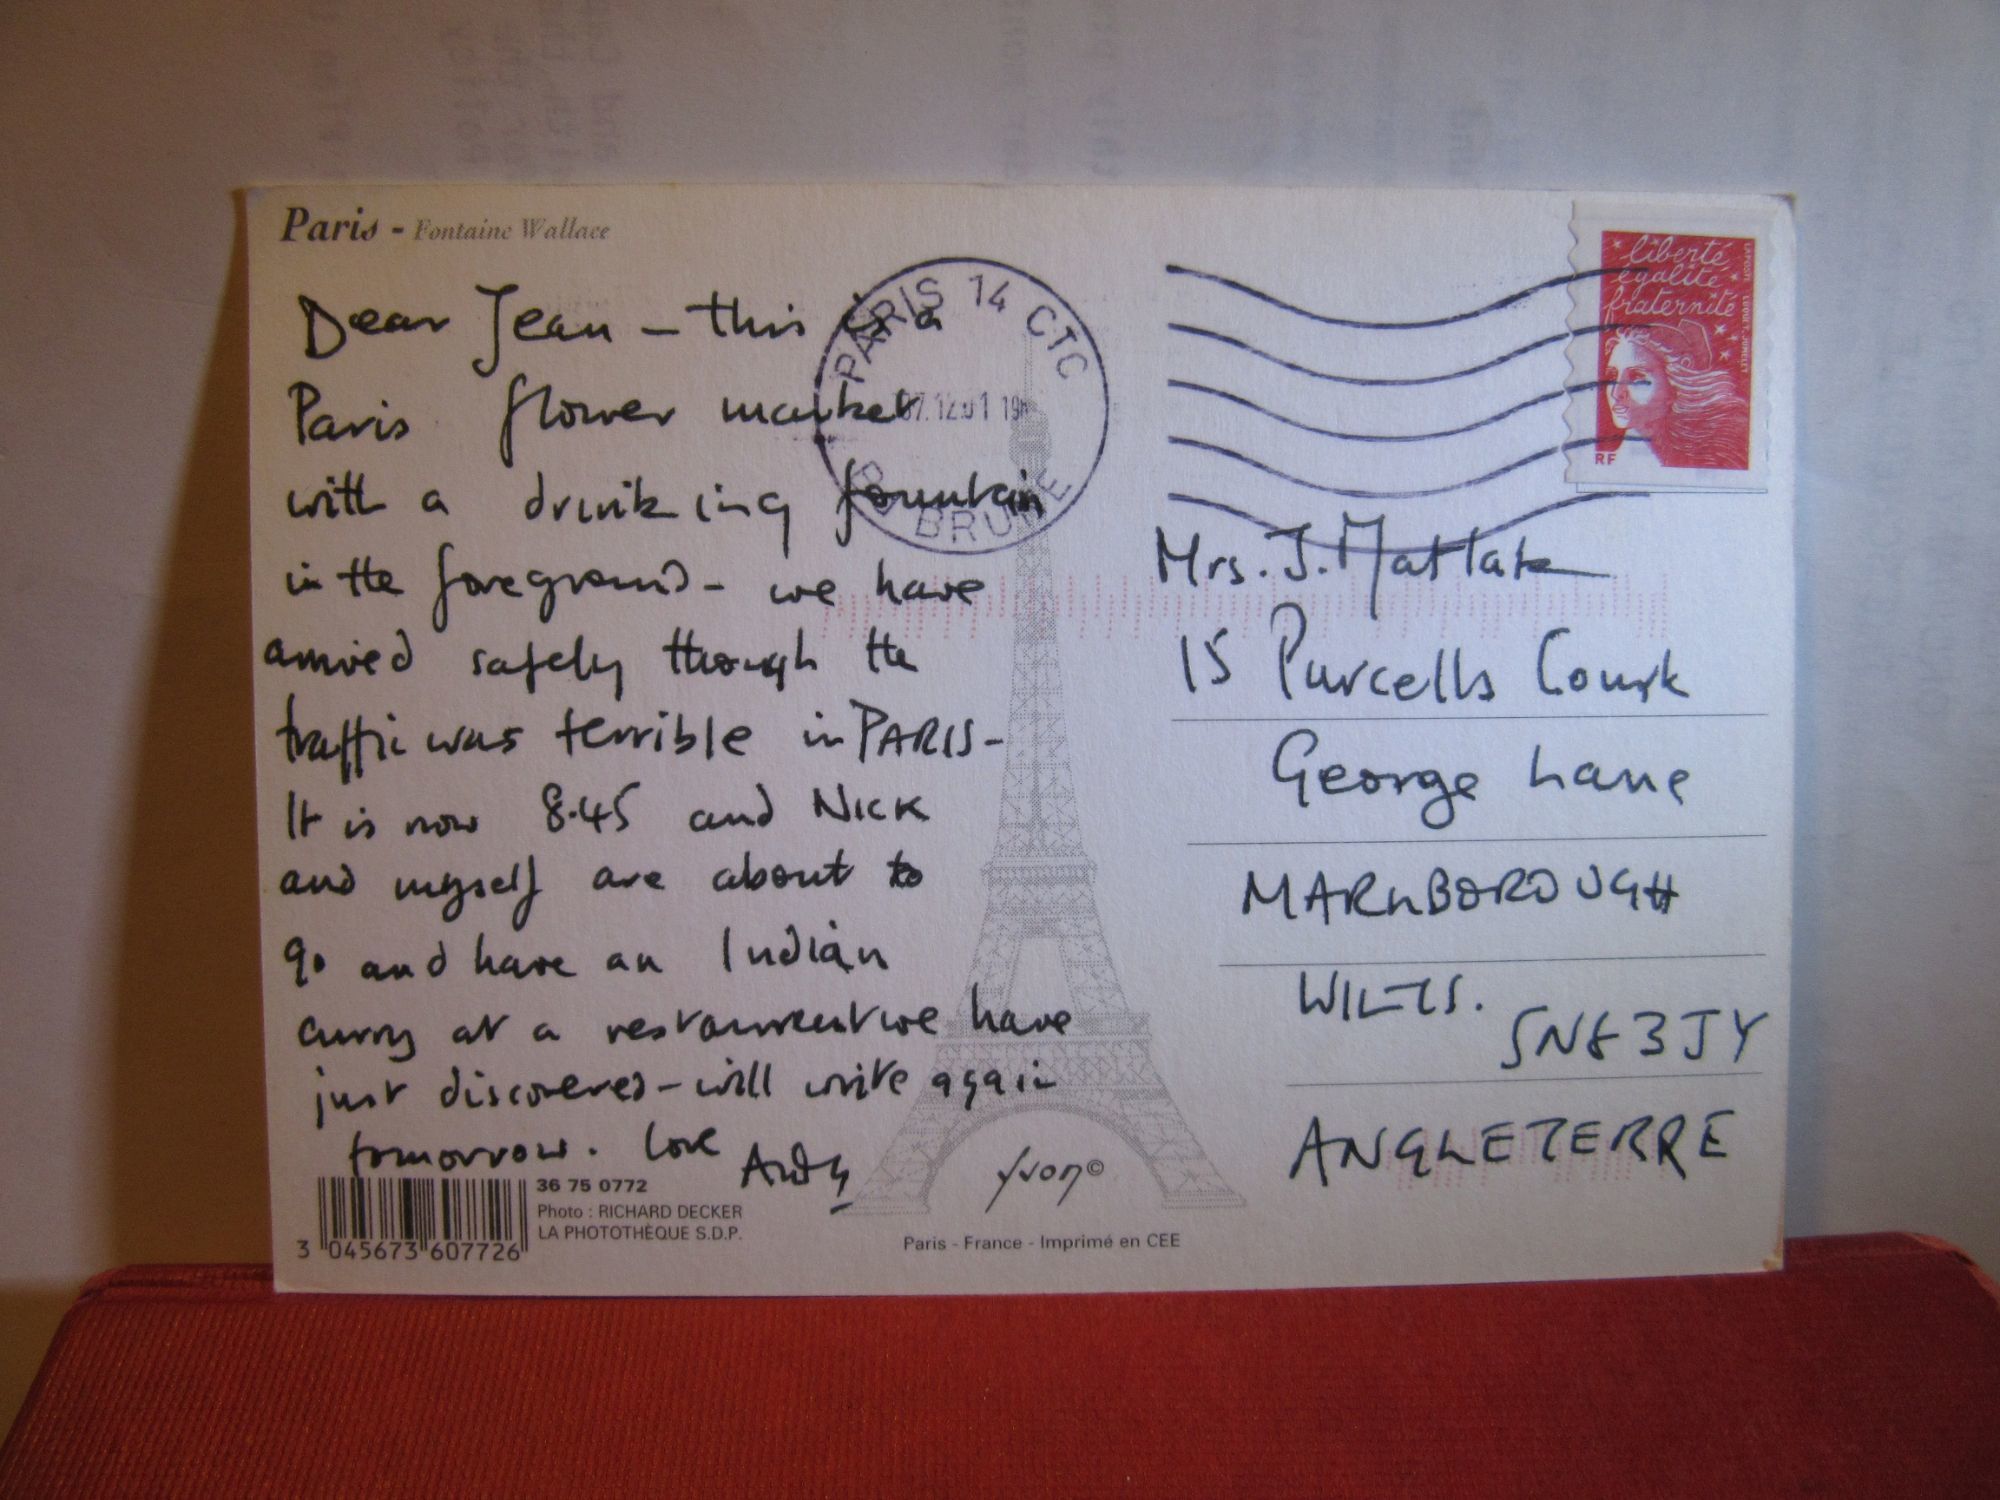 Paris - Fontaine Wallace
Dear Jean - this is a
Paris flower market
with a drinking fountain
in the foreground - we have
arrived safely though the
traffic was terrible in PARIS -
It is now 8.45 and NICK
and myself are about to
go and have an Indian
curry at a restaurent we have
just discovered - will write again
tomorrow. love Andy
36 75 0772
Photo : RICHARD DECKER
LA PHOTOTHÈQUE S.D.P.
3 045673 607726
yvon©
Paris - France - Imprimé en CEE
PARIS 14 CTC
07.12.01 19H
BRUNE
liberté
égalité
fraternité
RF
LA POSTE
Mrs. J. Matlak
15 Purcells Court
George Lane
MARLBOROUGH
WILTS.
SN8 3JY
ANGLETERRE